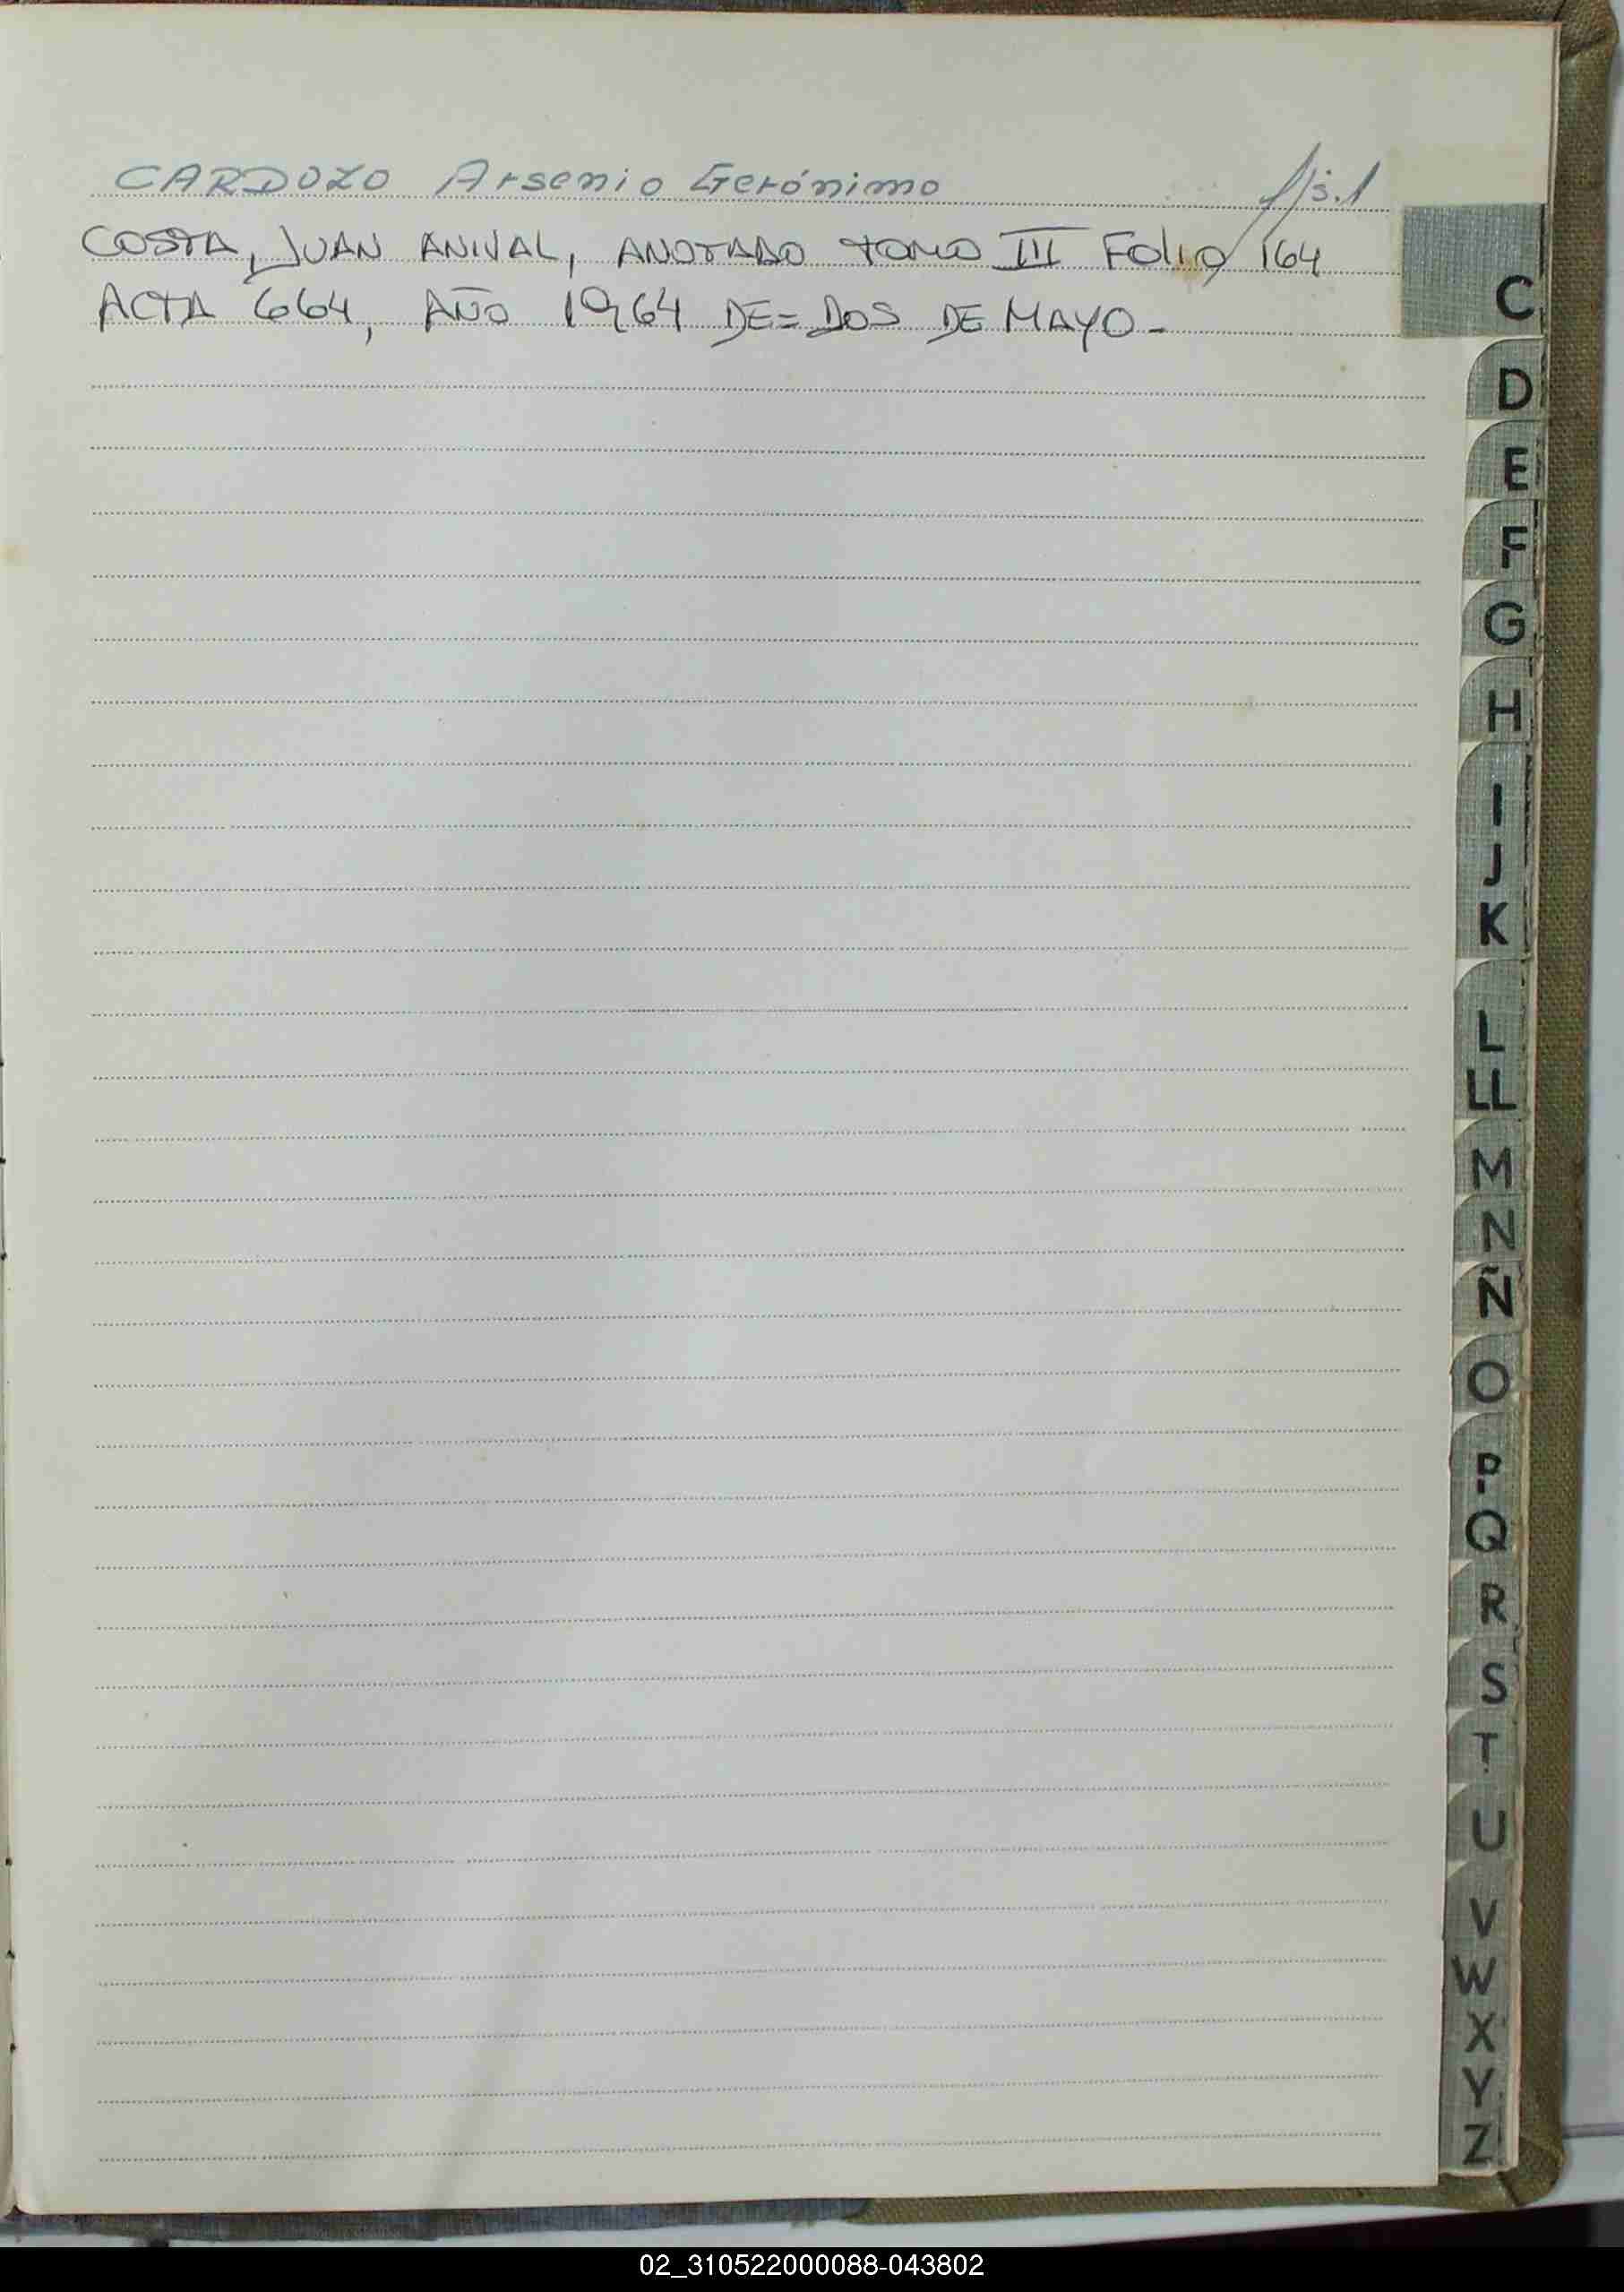 CARDOZO Arsenio Gerónimo fjs.1
COSTA, JUAN ANIVAL, ANOTADO TOMO III FOLIO 164
ACTA 664, AÑO 1964 DE=DOS DE MAYO-
C
D
E
F
G
H
I
J
K
L
LL
M
N
Ñ
O
P
Q
R
S
T
U
V
W
X
Y
Z
02_310522000088-043802